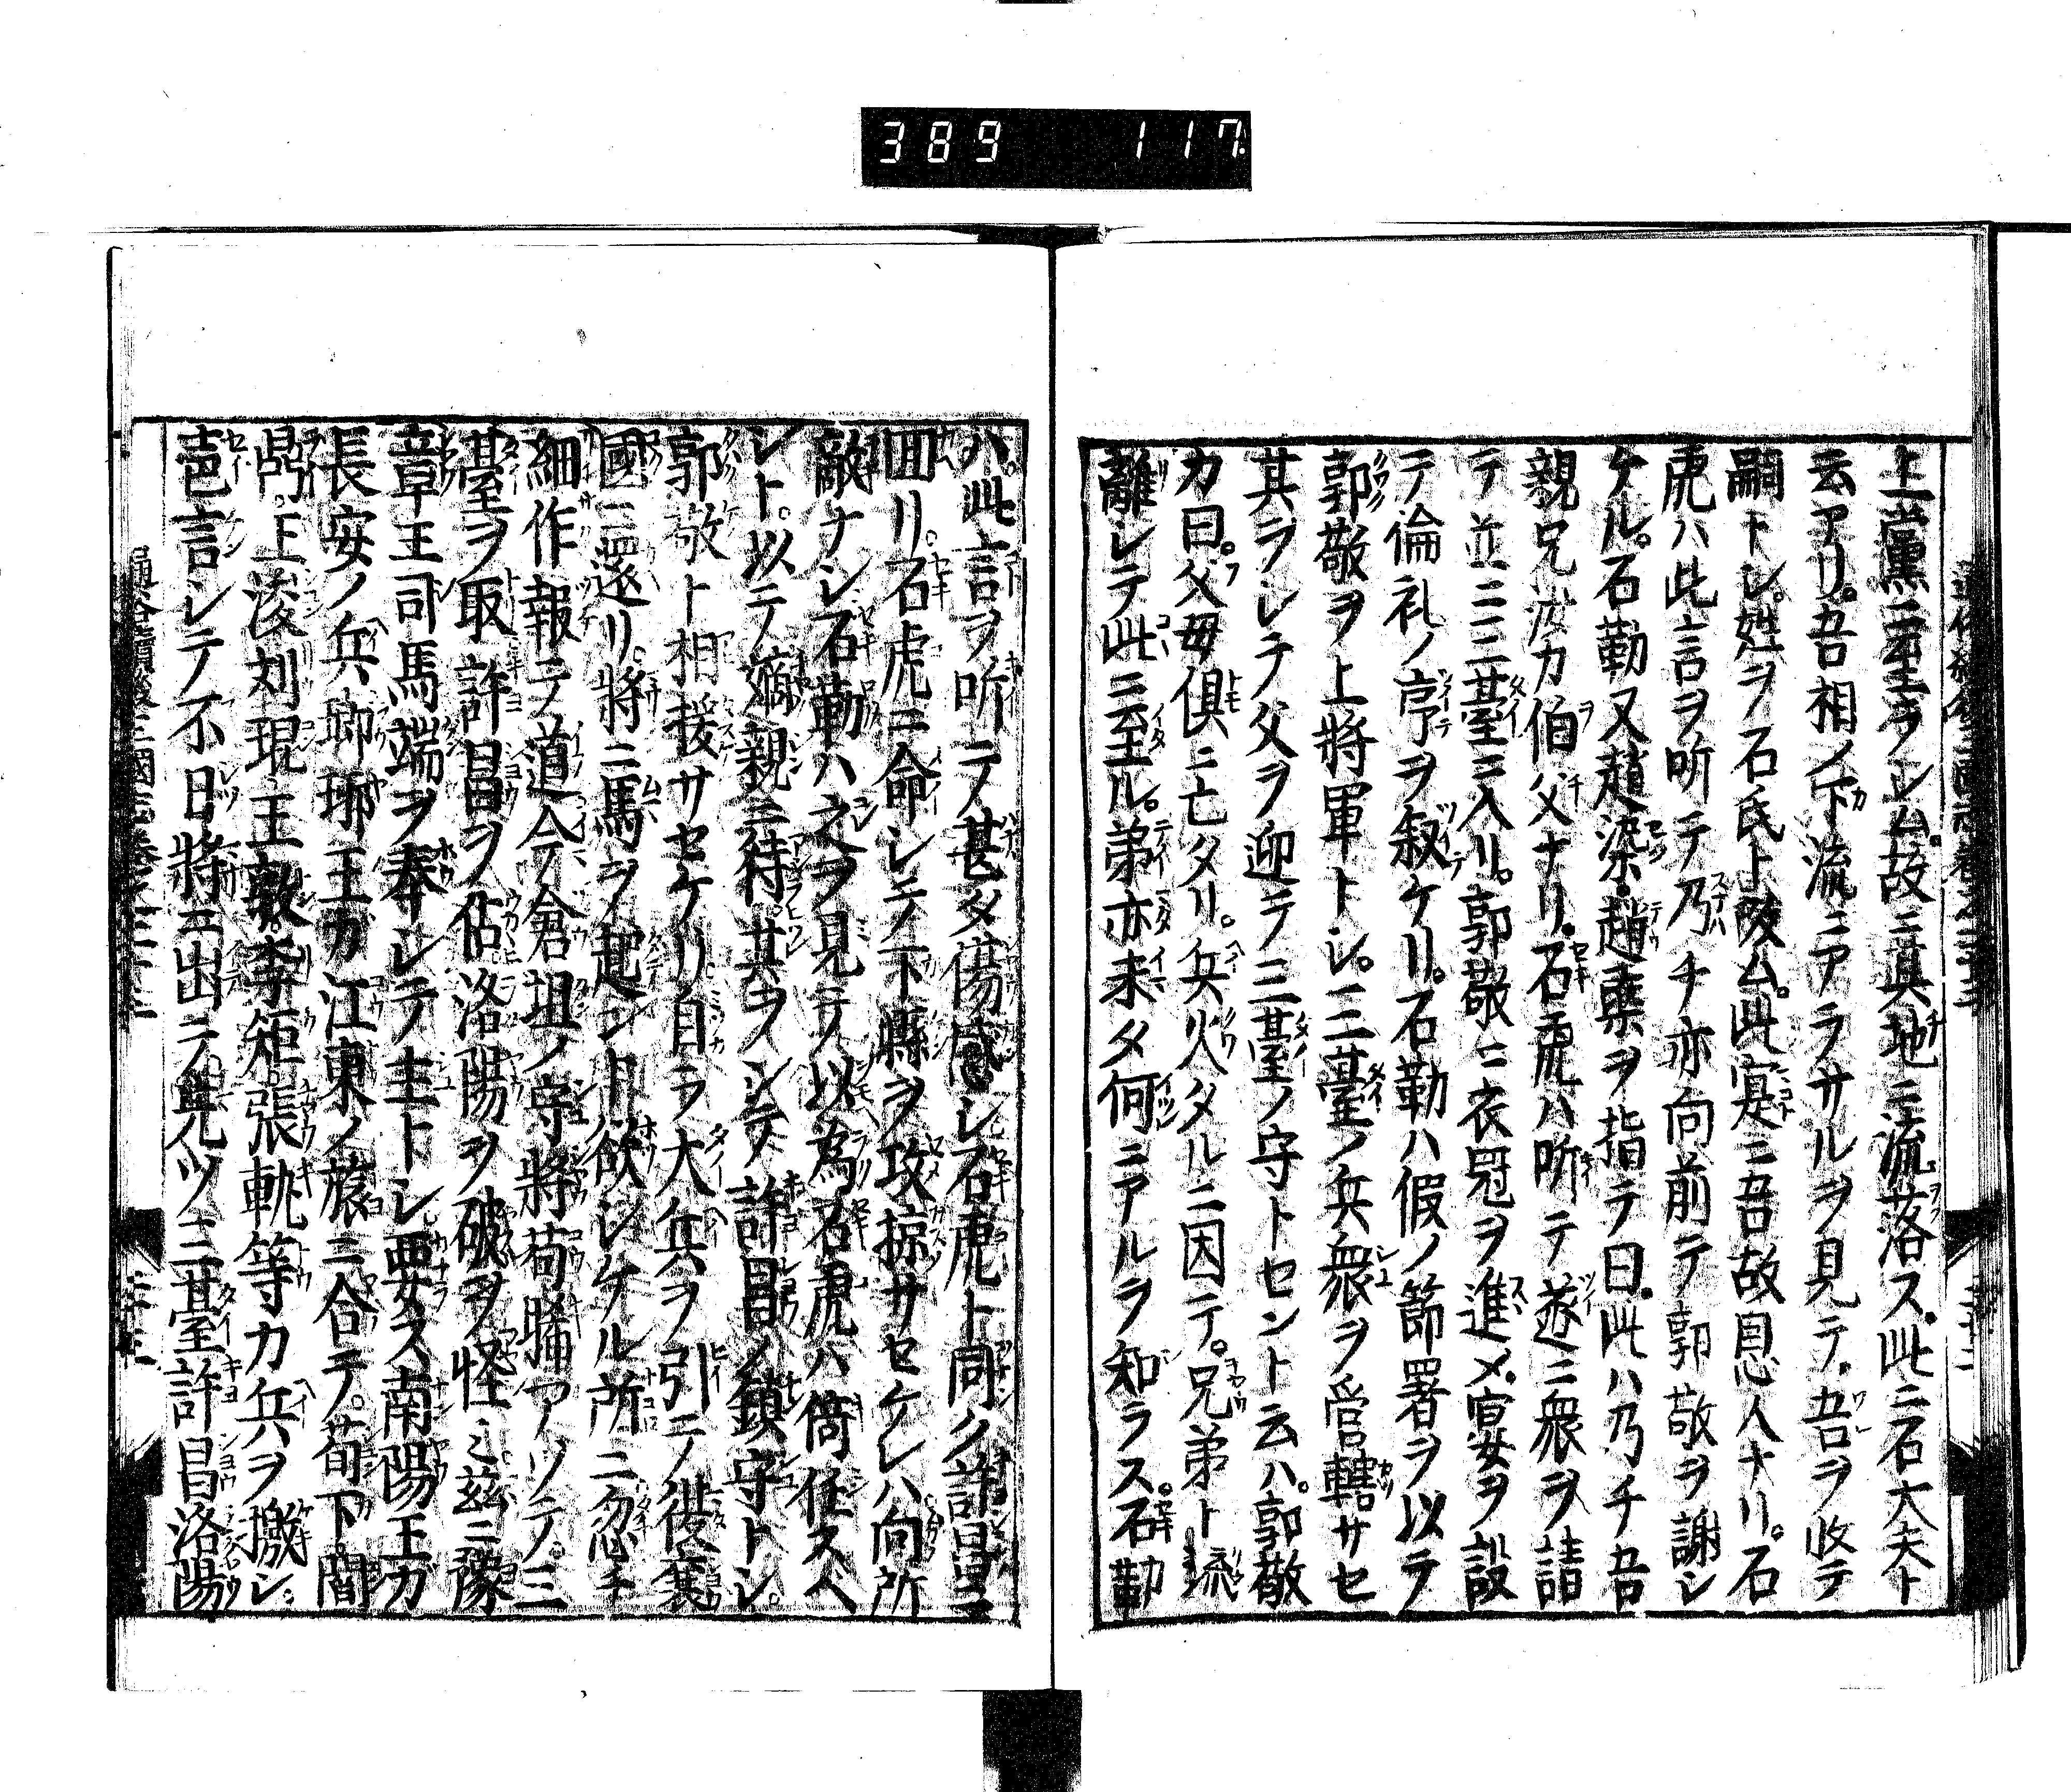 389 117
上黨ニ至ラシム。故ニ眞地ニ流落ス。此ニ石大夫ト
云アリ。吾相ノ下流ニアラサルヲ見テ。吾ヲ收テ
嗣トシ。姓ヲ石氏ト改ム。此寔ニ吾故恩人ナリ。石
虎ハ此言ヲ听テ乃チ亦向前テ郭敬ヲ謝シ
ケル。石勒又趙染。趙藥ヲ指テ曰。此ハ乃チ吾
親兄汝カ伯父ナリ。石虎ハ听テ遂ニ衆ヲ請
テ並ニ三臺ニ入リ。郭敬ニ衣冠ヲ進メ。宴ヲ設
テ倫礼ノ序ヲ叙ケリ。石勒ハ假ノ節署ヲ以テ
郭敬ヲ上將軍トシ。三臺ノ兵衆ヲ管轄サセ
其ヲシテ父ヲ迎テ三臺ノ守トセント云ハ。郭敬
カ曰。父母俱ニ亡タリ。兵火タルニ因テ。兄弟ト疏
離シテ此ニ至ル。弟亦未タ何ニアルヲ知ラス。石勒
ハ。此言ヲ听テ甚タ傷感シ石虎ト同ク許昌ニ
囬リ。石虎ニ命シテ下縣ヲ攻掠サセケレハ向所
敵ナシ石勒ハ之ヲ見テ以為石虎ハ倚任スヘ
シト。以テ嫡親ニ待。其ヲシテ許昌ノ鎮守トシ。
郭敬ト相接サセケリ自ラ大兵ヲ引テ襄
國ニ還リ。將ニ馬ヲ起ント欲シケル所ニ忽チ
細作報テ道今倉垣ノ守將荀晞アツテ。三
臺ヲ取許昌ヲ佔洛陽ヲ破ヲ怪ミ玆ニ豫
章王司馬端ヲ奉シテ主トシ要ス南陽王カ
長安ノ兵瑯琊王カ江東ノ旅ニ合テ。荀下。閻
鼎。王浚刘琨王敦。李矩。張軌等カ兵ヲ檄シ
言シテ不日將ニ出テ先ツ三臺許昌洛陽